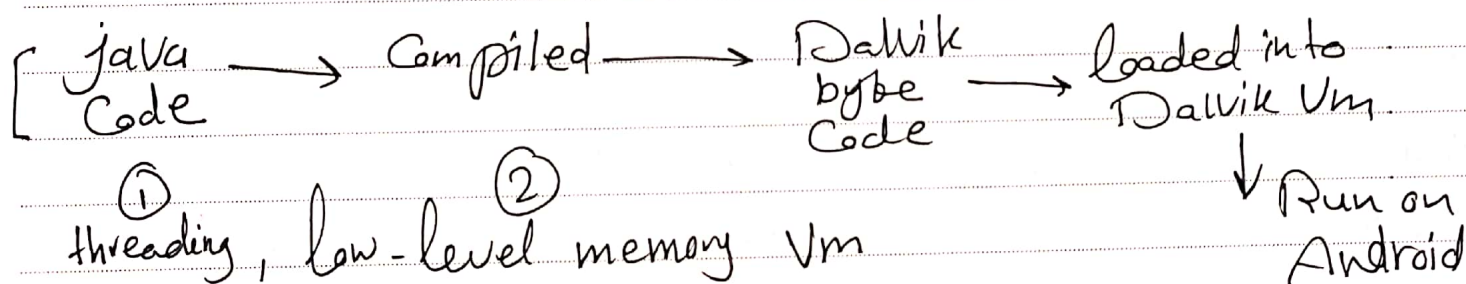 [ java Code → Compiled → Dalvik byte Code → loaded into Dalvik Vm.
↓ Run on Android
① ②
threading, low-level memory Vm